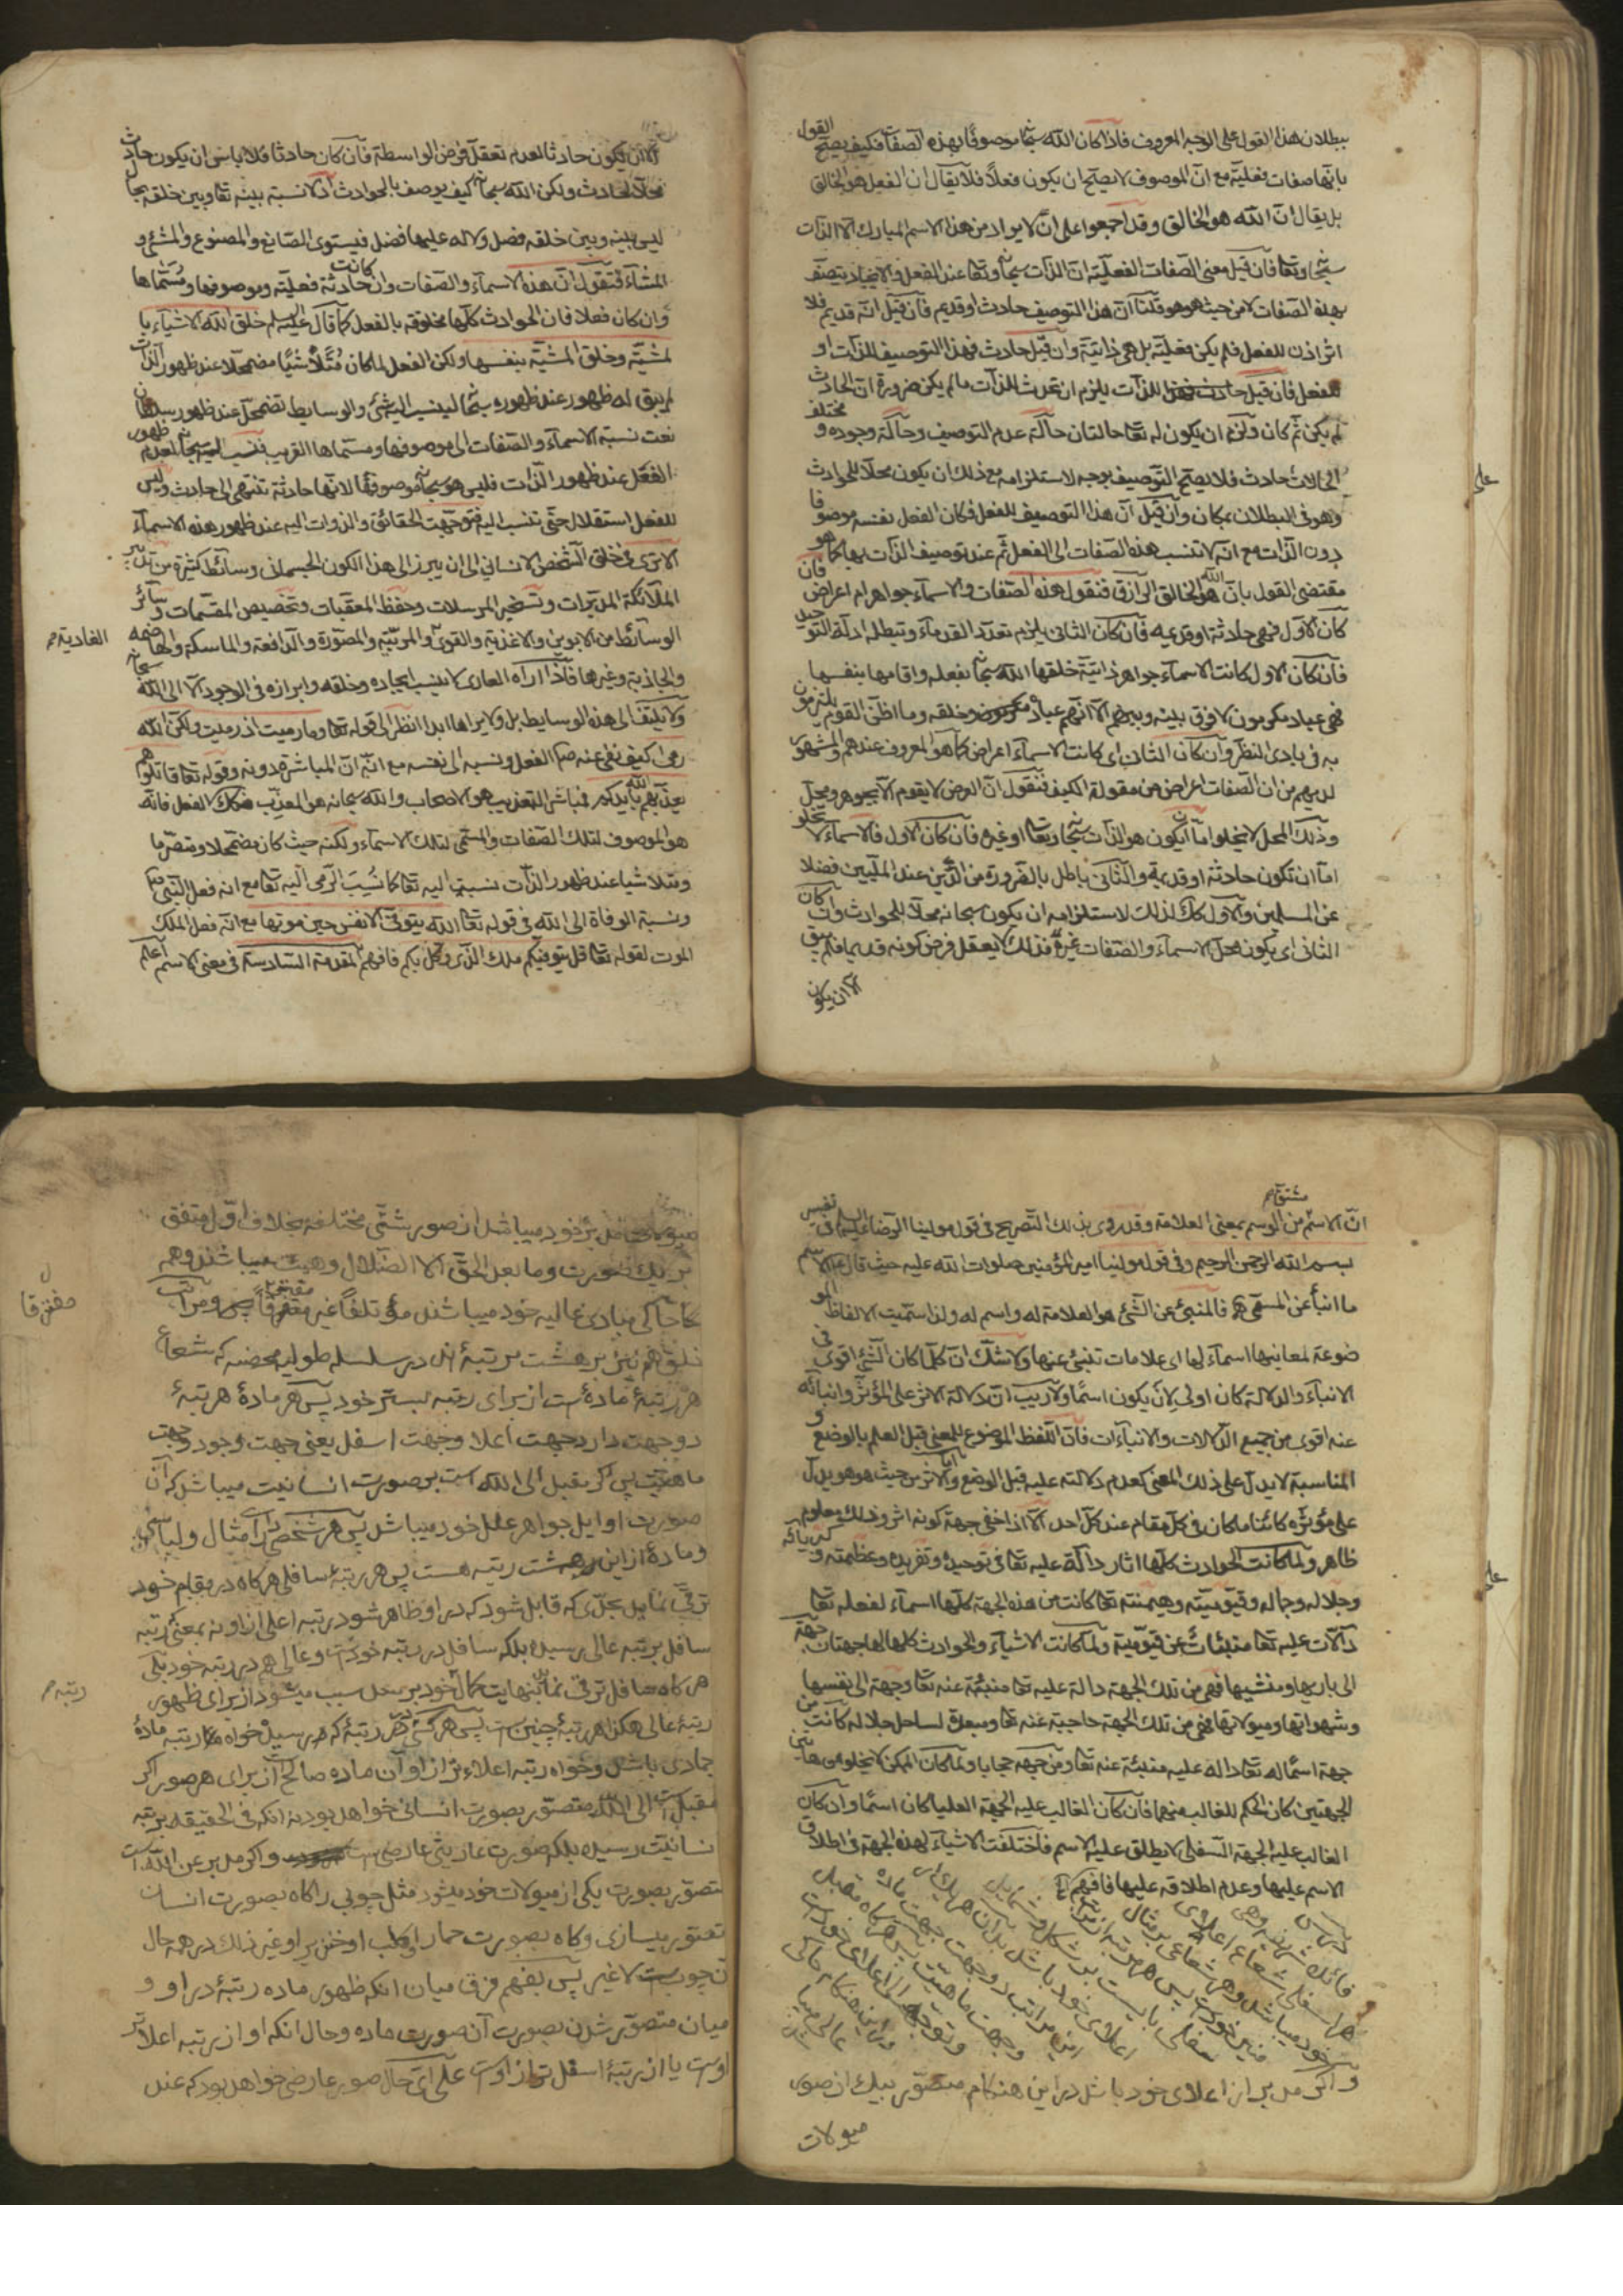 ببطلان هذا القول على الوجه المعروف فاذا كان الله سبحانه موصوفا بهذه الصفات فكيف يصح القول
بانها صفات فعلية مع ان الموصوف لا يصح ان يكون فعلاً فلا يقال ان الفعل هو الخالق
بل يقال ان الله هو الخالق وقد اجمعوا على ان لا يراد من هذا الاسم المبارك الا الذات
سبحانه وتعا فان قيل معنى الصفات الفعلية ان الذات سبحانه وتعا عند الفعل والايجاد يتصف
بهذه الصفات لا من حيث هو هو قلنا ان هذا التوصيف حادث او قديم فان قيل انه قديم فلا
اثر اذن للفعل فلم يكن فعلية بل هي ذاتية وان قيل حادث فهذا التوصيف للذات او
للفعل فان قيل للذات يلزم ان تحدث للذات ما لم يكن ضرورة ان الحادث
لم يكن ثم كان ولزم ان يكون له تعا حالتان حالة عدم التوصيف وحالة وجوده و مختلف
الحالات حادث فلا يصح التوصيف بوجه لاستلزامه مع ذلك ان يكون محلا للحوادث
وهو في البطلان بمكان وان قيل ان هذا التوصيف للفعل فكان الفعل نفسه موصوفا
دون الذات مع انه لا تنسب هذه الصفات الى الفعل ثم عند توصيف الذات بها كما هو
مقتضى القول بان الله هو الخالق الرازق فنقول هذه الصفات والاسماء جواهر ام اعراض فان
كان الاول فهي حادثة او قديمة فان كان الثاني يلزم تعدد القدماء وتبطله ادلة التوحيد
فان كان الاول كانت الاسماء جواهر ذاتية خلقها الله سبحانه بفعله واقامها بنفسها
فهي عباد مكرمون لا فرق بينه وبينهم الا انهم عباده وخلقه وما اظن القوم يلتزمون
به في بادى النظر وان كان الثاني اي كانت الاسماء اعراض كما هو المعروف عندهم والمشهور
لديهم من ان الصفات اعراض من مقولة الكيف فنقول ان العرض لا يقوم الا بجوهر ومحل
وذلك المحل لا يخلوا اما ان يكون هو الذات سبحانه وتعا او غيره فان كان الاول فالاسماء لا تخلو
اما ان تكون حادثة او قديمة والثاني باطل بالضرورة من الدين عند المليين فضلا
عن المسلمين والاول كك لذلك لاستلزامه ان يكون سبحانه محلا للحوادث وان كان
الثاني اي يكون محل الاسماء والصفات غيره فذلك لا يعقل فرض كونه قديما فلم يبق
الا ان يكون
الا ان يكون حادثا لعدم تعقل فرض الواسطة فان كان حادثا فلا باس ان يكون حادث
محلا لحادث ولكن الله سبحانه كيف يوصف بالحوادث اذ لا نسبة بينه تعا وبين خلقه
ليس بينه وبين خلقه فصل ولا له عليها فضل فيستوى الصانع والمصنوع والمنشئ و
المنشأ فنقول ان هذه الاسماء والصفات وان كانت حادثة فعلية وموصوفها ومسماها
وان كان فعلا فان الحوادث كلها مخلوقة بالفعل كما قال عليه السلم خلق الله الاشياء با
لمشية وخلق المشية بنفسها ولكن الفعل لما كان متلاشيا مضمحلا عند ظهور الذات
لم يبق له ظهور عند ظهوره لينسب اليه شئ والوسايط تضمحل عند ظهور
نعت نسبة الاسماء والصفات الى موصوفها ومسماها القريب فنسب اليه سبحانه لعدم ظهور
الفعل عند ظهور الذات فليس هو سبحانه موصوفها لانها حادثة تنتهى الى حادث وليس
للفعل استقلال حتى تنسب اليه فتوجهت الحقائق والذوات اليه عند ظهور هذه الاسماء
الا ترى في خلق الشخص الانساني الى ان يبرز الى هذا الكون الجسماني وسائط كثيرة من تدبير
الملائكة المدبرات وتسخير المرسلات وحفظ المعقبات وتخصيص المقسمات وسائر
الوسائط من الابوين والاغذية والقوى والمربية والمصورة والدافعة والماسكة والهاضمه
الغاذية
والجاذبة وغيرها فاذا اراه العارف لا ينسب ايجاده وخلقه وابرازه في الوجود الا الى الله سبحانه
ولا يلتفت الى هذه الوسايط بل ولا يراها ابدا انظر الى قوله تعا وما رميت اذ رميت ولكن الله
رمى كيف نفى عنه صم الفعل ونسبه الى نفسه مع انه ان المباشرة دونه وقوله تعا قاتلوهم
يعذبهم الله بايديكم فمباشر التعذيب هو الاصحاب والله سبحانه هو المعذب فكك الفعل فانه
هو الموصوف لتلك الصفات والمسمى لتلك الاسماء ولكنه حيث كان مضمحلا ومتصرما
ومتلاشيا عند ظهور الذات نسبتها اليه تعا كما نسب الرمى اليه تعا مع انه فعل النبي
ونسبة الوفاة الى الله في قوله تعا الله يتوفى الانفس حين موتها مع انه فعل الملك
الموت لقوله تعا قل يتوفيكم ملك الذي وكل بكم فافهم المقدمة السادسة في معنى الاسم اعلم
ان الاسم مشتق من الوسم بمعنى العلامة وقد روى بذلك التصريح في قول مولينا الرضا عليه السلم في تفسير
بسم الله الرحمن الرحيم وفي قول مولينا امير المؤمنين صلوات الله عليه حيث قال الاسم
ما انبأ عن المسمى فالمنبئ عن الشئ هو العلامة له واسم له ولذا سميت الالفاظ المو
ضوعة لمعانيها اسماء لها اى علامات تنبئ عنها ولا شك ان كلما كان الشئ اقوى في
الانباء والدلالة كان اولى لان يكون اسما ولا ريب ان دلالة الاثر على المؤثر وانبائه
عنه اقوى من جميع الدلالات والانباءات فان اللفظ الموضوع للمعنى قبل العلم بالوضع و
المناسبة لا يدل على ذلك المعنى كعدم دلالته عليه قبل الوضع واما الاثر من حيث هو هو يدل
على مؤثره كائنا ما كان في كل مقام عند كل احد الا اذا خفى جهة كونه اثر وذلك معلوم
ظاهر ولما كانت الحوادث كلها اثار دالة عليه تعا في توحيده وتفريده وعظمته وكبريائه
وجلاله وجماله وقيوميته وهيمنته تعا كانت من هذه الجهة كلها اسماء لفعله تعا
دالات عليه تعا منبئات عن قيومية ولما كانت الاشياء والحوادث كلها لها جهتان جهة
الى باريها ومنشيها فهي من تلك الجهة دالة عليه تعا منبئة عنه تعا وجهة الى نفسها
وشهواتها وميولاتها فهي من تلك الجهة حاجبة عنه تعا لساحل جلاله كانت من
جهة اسماء له تعا دالة عليه منبئة عنه تعا ومن جهه حجابا ولما كان الممكن لا يخلو من هاتين
الجهتين كان الحكم للغالب منهما فان كان الغالب عليه الجهة العليا كان اسما وان كان
الغالب عليه الجهة السفلى لا يطلق عليه الاسم فاختلفت الاشياء لهذه الجهة في اطلاق
الاسم عليها وعدم اطلاقه عليها فافهم
و اگر مدبر از اعلاى خود باشد در اين هنگام متصور بيك از صور
ميولات
ميولات خود ميباشد از صور شتى مختلفه بخلاف اول متفق
بر يك صورت وما بعد الحق الا الضلال وهمه ميباشند وهمه
حاكى مبادى عاليه خود ميباشند مؤتلفا غير مفترقا ومراتب
مفترقا
هم نيز بر هشت مرتبۀ اند در سلسله طوليه محضه كه شعاع
هر رتبۀ مادۀ است از براى رتبه پستتر خود پس هر مادۀ هر رتبۀ
دو جهت دارد جهت اعلا وجهت اسفل يعنى جهت وجود وجهت
ماهيت پس اگر مقبل الى الله است بر صورت انسانيت ميباشد كه آن
صورت اوايل جواهر علل خود ميباشد پس هر شخصى را مثال ولباسى
ومادۀ از اين هشت رتبه هست پس هر رتبۀ سافلى هر گاه در مقام خود
ترقى نمايد بحدى كه قابل شود كه در او ظاهر شود رتبه اعلى از او نه بمعنى رتبه
سافل برتبه عالى رسيده بلكه سافل در رتبه خود است وعالى هم در رتبه خود بلى
هر گاه سافل ترقى نمايد بنهايت كمال خود سبب ميشود از براى ظهور
رتبه
رتبۀ عالى هكذا هر رتبۀ چنين است پس هر كسى در هر رتبۀ كه رسيد خواه رتبه مادۀ
جمادى باشد وخواه رتبه اعلاء تر از او آن ماده صالح است از براى هر صور اگر
مقبل است الى الله متصور بصورت انسانى خواهد بود نه انكه في الحقيقه برتبه
انسانيت رسيده بلكه صورت عاريتى عارضى است واگر مدبر عن الله است
متصور بصورت يكى از ميولات خود ميشود مثل چوبى را گاه بصورت انسان
متصور ميسازى وگاه بصورت حمار او كلب او خنزير او غير ذلك در همه حال
آن چوب است لا غير پس بفهم فرق ميان انكه ظهور ماده رتبۀ در او و
ميان متصور شدن بصورت آن صورت ماده وحال انكه او از رتبه اعلاتر
اوست يا از رتبۀ اسفل تر از اوست على اى حال صور عارضى خواهد بود كه عند